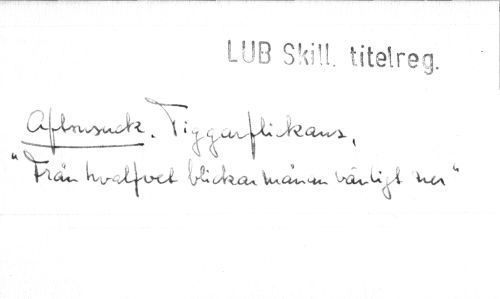 LUB Skill. titelreg.
Aftonsuck. Tiggarflickans,
"Från hvalfvet blickar månen vänligt ner"